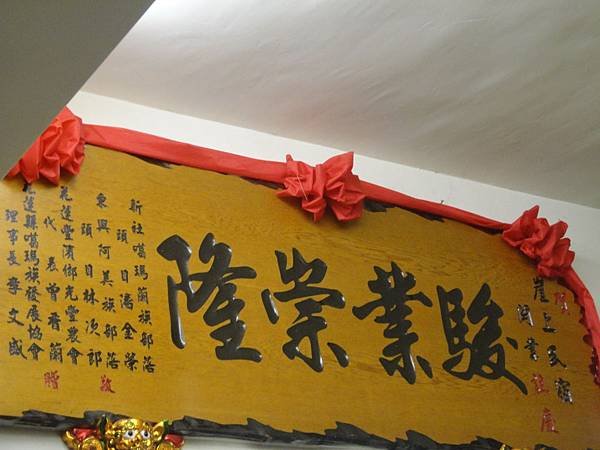 賀
崖上民宿
開業誌慶
駿業崇隆
新社噶瑪蘭族部落
頭目潘金榮
東興阿美族部落
頭目林次郎
敬
花蓮豐濱鄉光豐農會
代表曾香蘭
花蓮縣噶瑪蘭族發展協會
理事長李文盛
贈